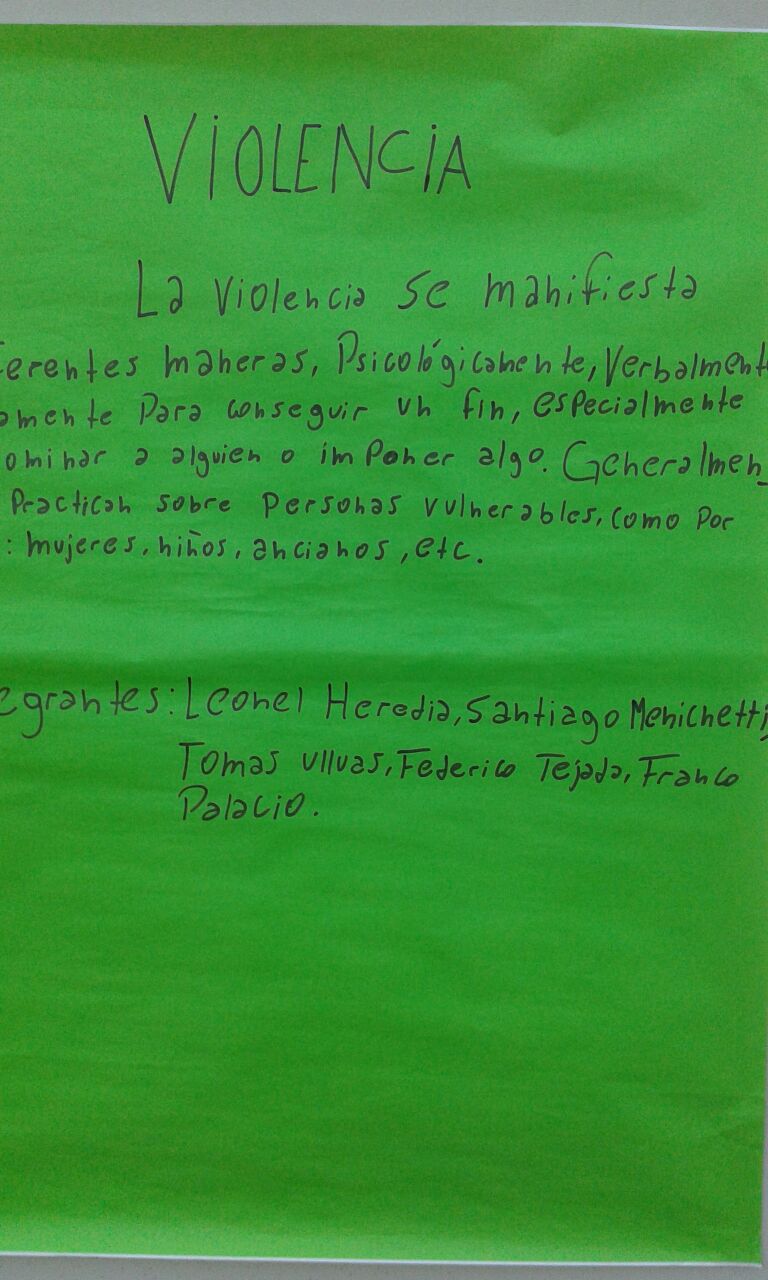 VIOLENCIA
La violencia se manifiesta
ferentes maneras, Psicológicamente, Verbalmente
amente Para conseguir un fin, especialmente
ominar a alguien o imponer algo. Generalmen_
Practican sobre Personas vulnerables, como Por
: mujeres, niños, ancianos, etc.
egrantes: Leonel Heredia, Santiago Menichetti,
Tomas Ulluas, Federico Tejada, Franco
Palacio.